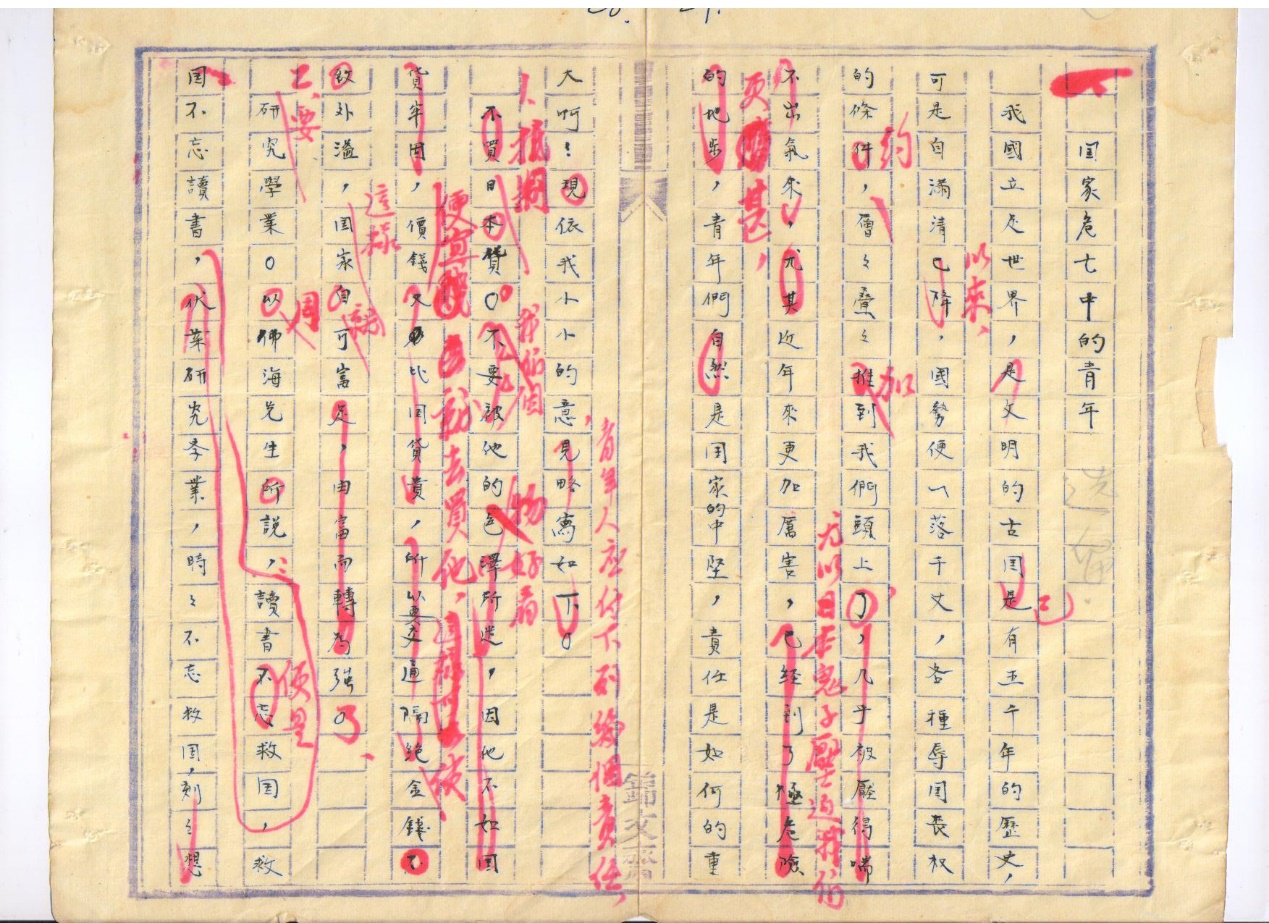 囯家危亡中的青年
我國立走世界，是文明的古囯是有五千年的歷史，
已
可是自滿清已降，國勢便一落千丈，各種辱囯丧权
以來、
的條件，層々疊々推到我們頭上了，几乎被壓得喘
約
加
不出氣來，尤其近年來更加厲害，已經到了極危險
尤以日本鬼子壓迫我们
更甚，
的地步，青年們自然是囯家的中堅，責任是如何的重
青年人应付下列幾個責任，
大啊！現依我小小的意見略寫如下。
1、抵制
我们個
物好看
不買日本貨。不要被他的色澤所迷，因他不如囯
便宜
去買他，
貨牢固，價錢又比囯貨貴，所以要交通隔絕金錢不
這樣
致外溢，囯家自可富足，由富而轉为强。
了、
二、要
用
研究學業。以佛海先生所説，讀書不忘救囯，救
便是
囯不忘讀書，伏案研究孝業，時々不忘救囯，刻々想